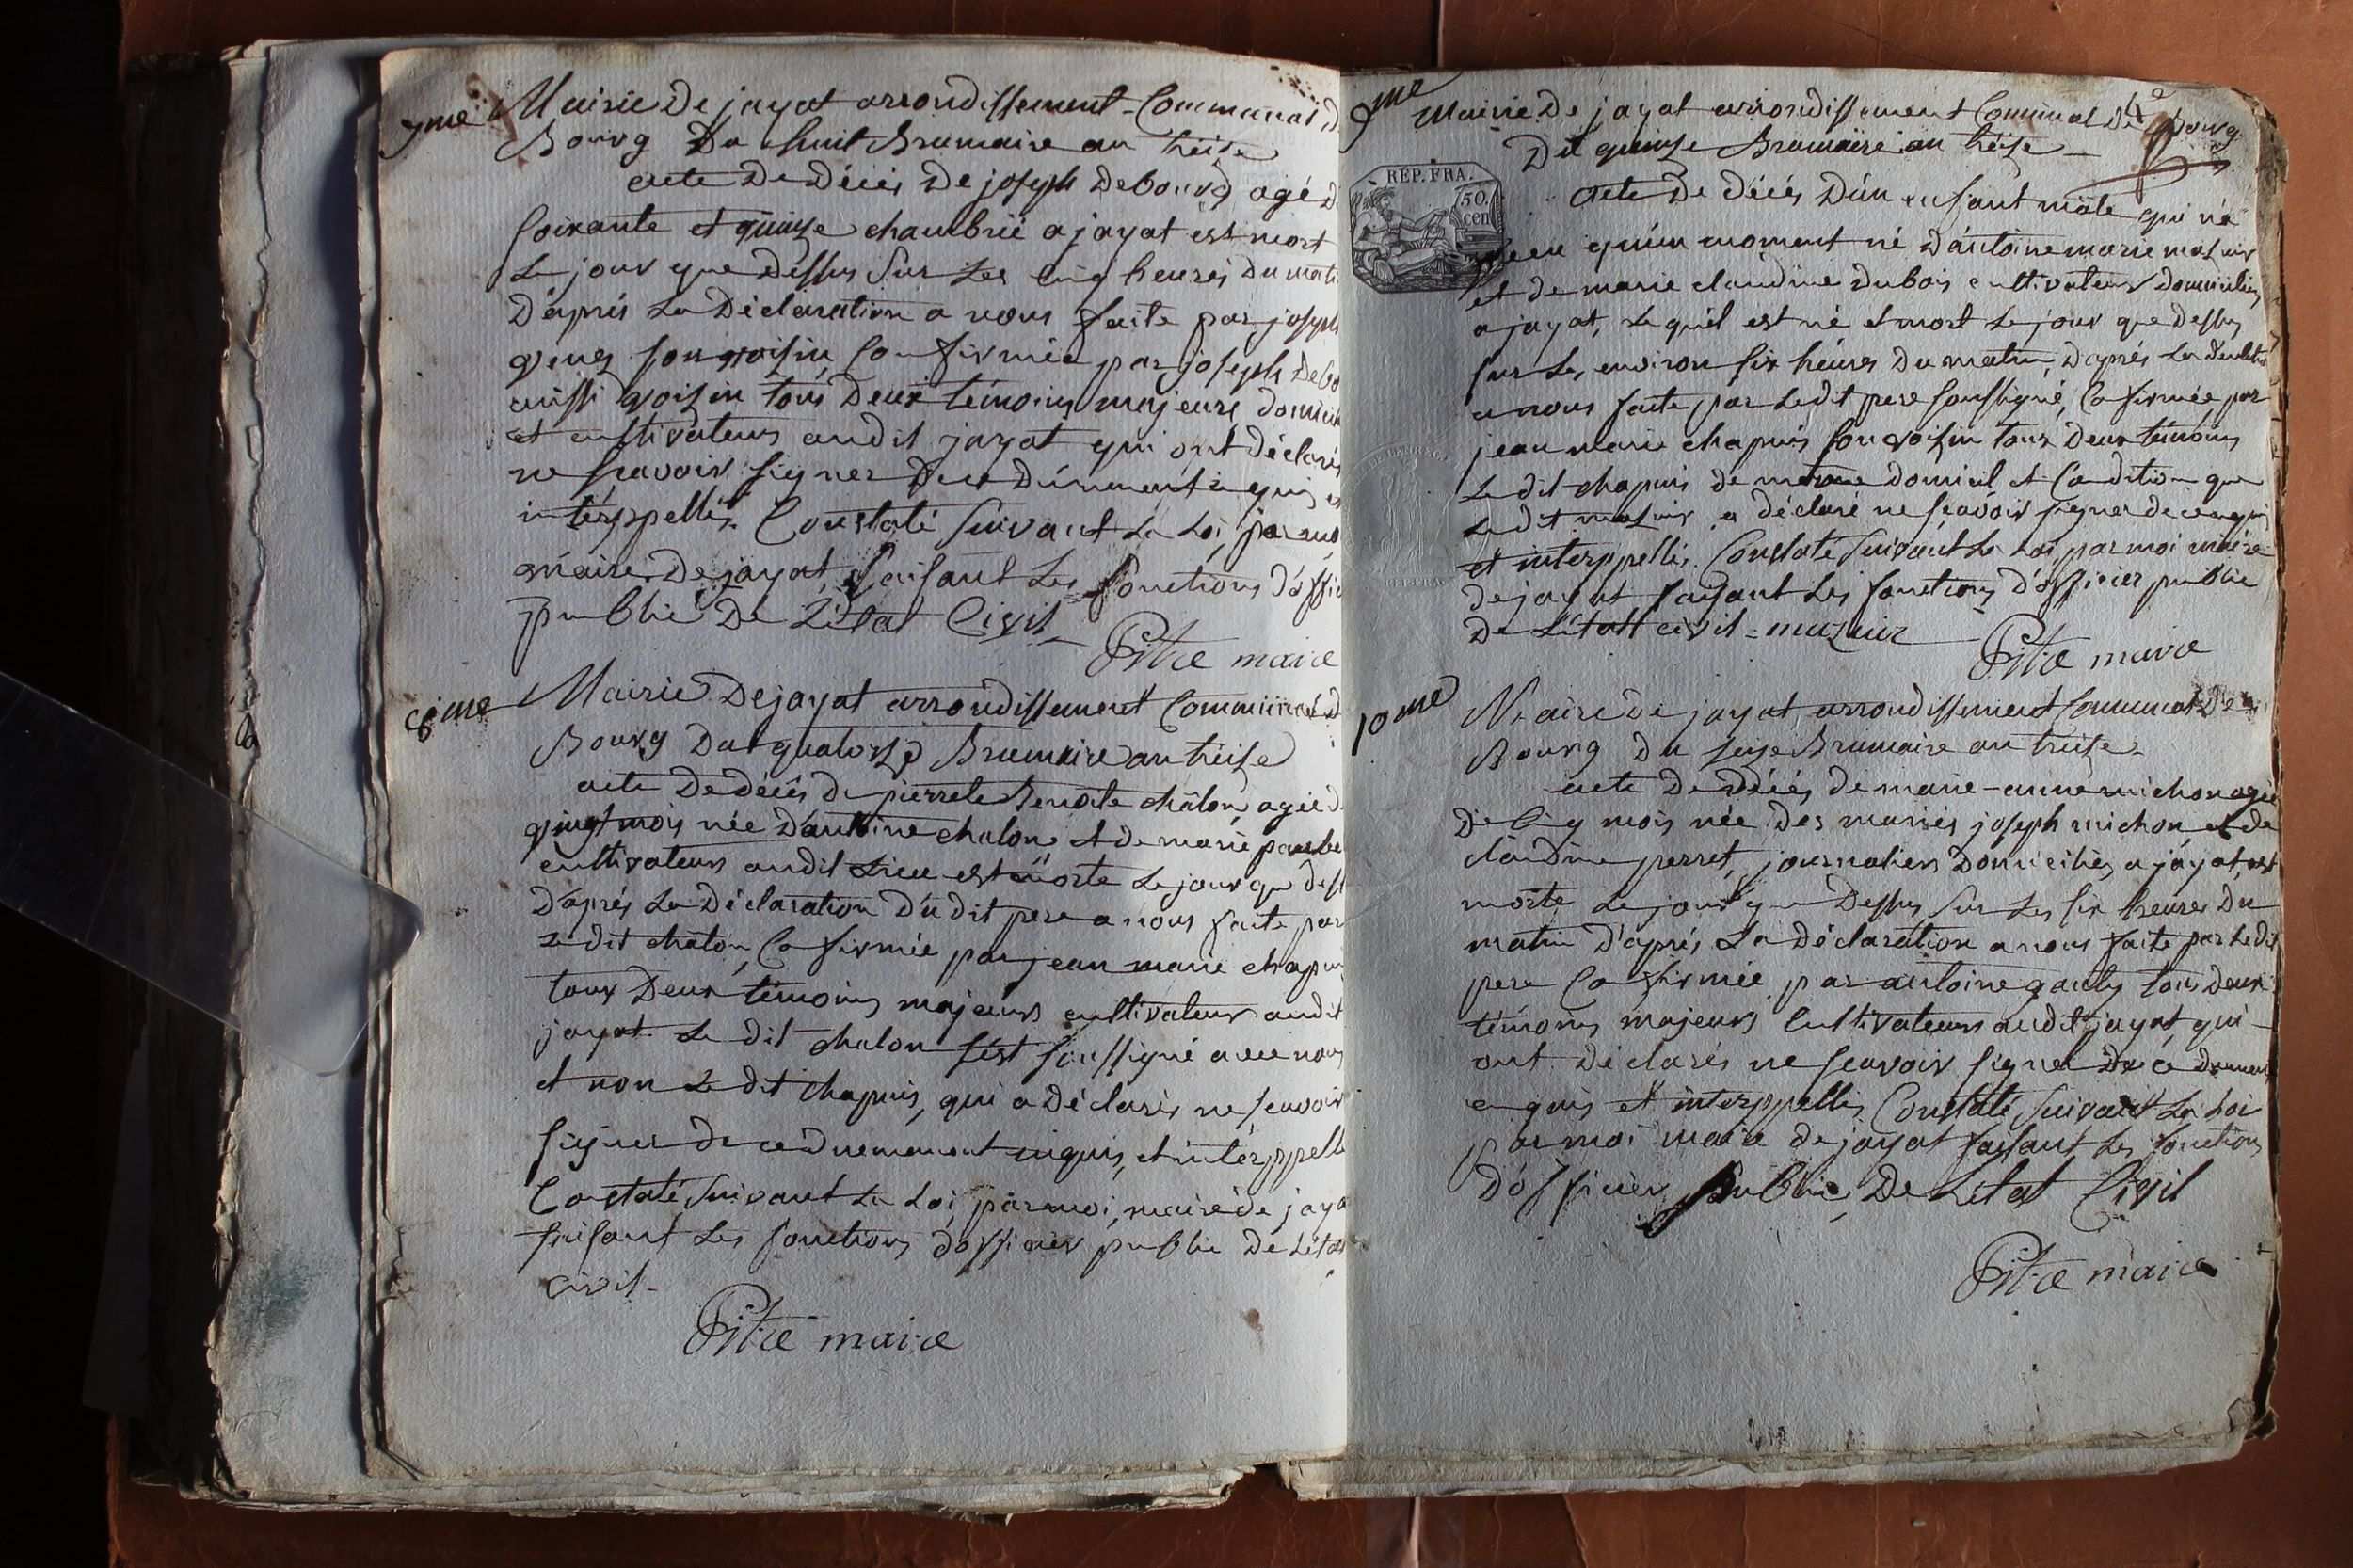 7me Mairie De jayat arrondissement Communal d
Bourg Du huit Brumaire an treize
acte De Décés De joseph Debourg agé d
soixante et quinze chambrié a jayat est mort
Le jour que Dessus sur Les cinq heures du mati
D'aprés La Déclaration a nous faite par joseph
son voisin, Confirmée par joseph Debo
aussi voisin tous Deux témoins majeurs domici
et cultivateurs audit jayat qui ont déclarés
ne scavoir signer De ce Dûmment
interppellés. Constaté suivant La Loi par moi
maire De jayat faisant Les fonctions d'offic
public De L'état Civil
Pitre maire
8eme Mairie De jayat arrondissement Communal d
Bourg Du quatorze Brumaire an treize
acte De décés De pierrete Benoite chalon agée d
vingt mois née D'antoine chalon et De marie
cultivateurs audit Lieu est morte Le jour que dess
D'aprés La Déclaration Du dit pere a nous faite par
Le dit chalon, Confirmée par jean marie chapui
tous Deux témoins majeurs cultivateurs audit
jayat Le dit chalon s'est soussigné avec nous
et non Le dit chapuis, qui a déclarés ne scavoir
signer de ce duement enquis, et interppellé
Constaté suivant La Loi, par moi, maire de jaya
faisant Les fonctions d'officier public De L'éta
civil
Pitre maire
4e
9me Mairie De jayat arrondissement Communal De Bourg
Du quinze Brumaire an treize
RÉP. FRA.
50. cen
acte De décés D'un enfant mâle qui n'a
vécu qu'un moment né d'antoine marie mazuir
et de marie claudine Dubois cultivateurs domiciliés
a jayat, Le quél est né et mort Le jour que Dessus
sur Les environ six heures Du matin, d'aprés La
a nous faite par Ledit pere soussigné, Confirmée par
jean marie chapuis son voisin tous Deux témoins
Le dit chapuis de meme domicil et Condition que
Le dit mazuir a déclaré ne scavoir signer de ce enquis
et interppellés. Constaté suivant La Loi par moi maire
de jayat faisant Les fonctions d'officier public
De L'état civil = mazuir
Pitre maire
10me Maire De jayat arrondissement Communal De
Bourg Du seize Brumaire an treize
acte De décés de marie-anne michon agée
De Cinq mois née Des mariés joseph michon et de
claudine perret, journaliers Domiciliés a jayat, est
morte Le jour que Dessus sur Les six heures Du
matin D'aprés La Déclaration a nous faite par Ledit
pere Confirmée par antoine tous deux
témoins majeurs Cultivateurs audit jayat, qui
ont déclarés ne scavoir signer De ce
enquis et interppellés Constaté suivant La Loi
par moi maire de jayat faisant Les fonctions
D'officier Public, De L'état Civil
Pitre maire